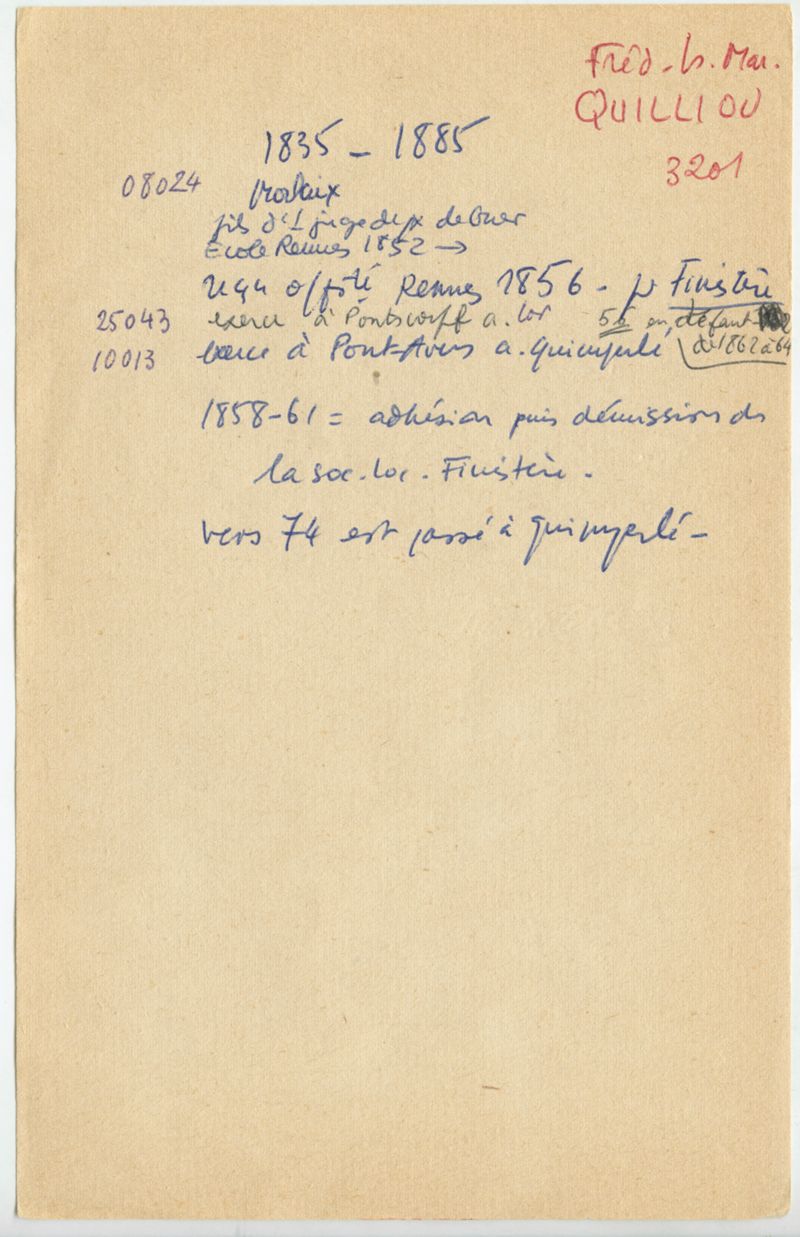 Fréd. Ls. Mar.
QUILLIOU
3201
1835 – 1885
08024 Morlaix
fils d'1 juge de px de
Ecole Rennes 1852 →
reçu off. Rennes 1856 – pr Finistère
25043 exerce à Pontscorff a. Lor 56 en défaut
de 1862 à 64
10013 exerce à Pont-Aven a. Quimperlé
1858-61 = adhésion puis démission de
la soc. loc. Finistère.
vers 74 est passé à Quimperlé –